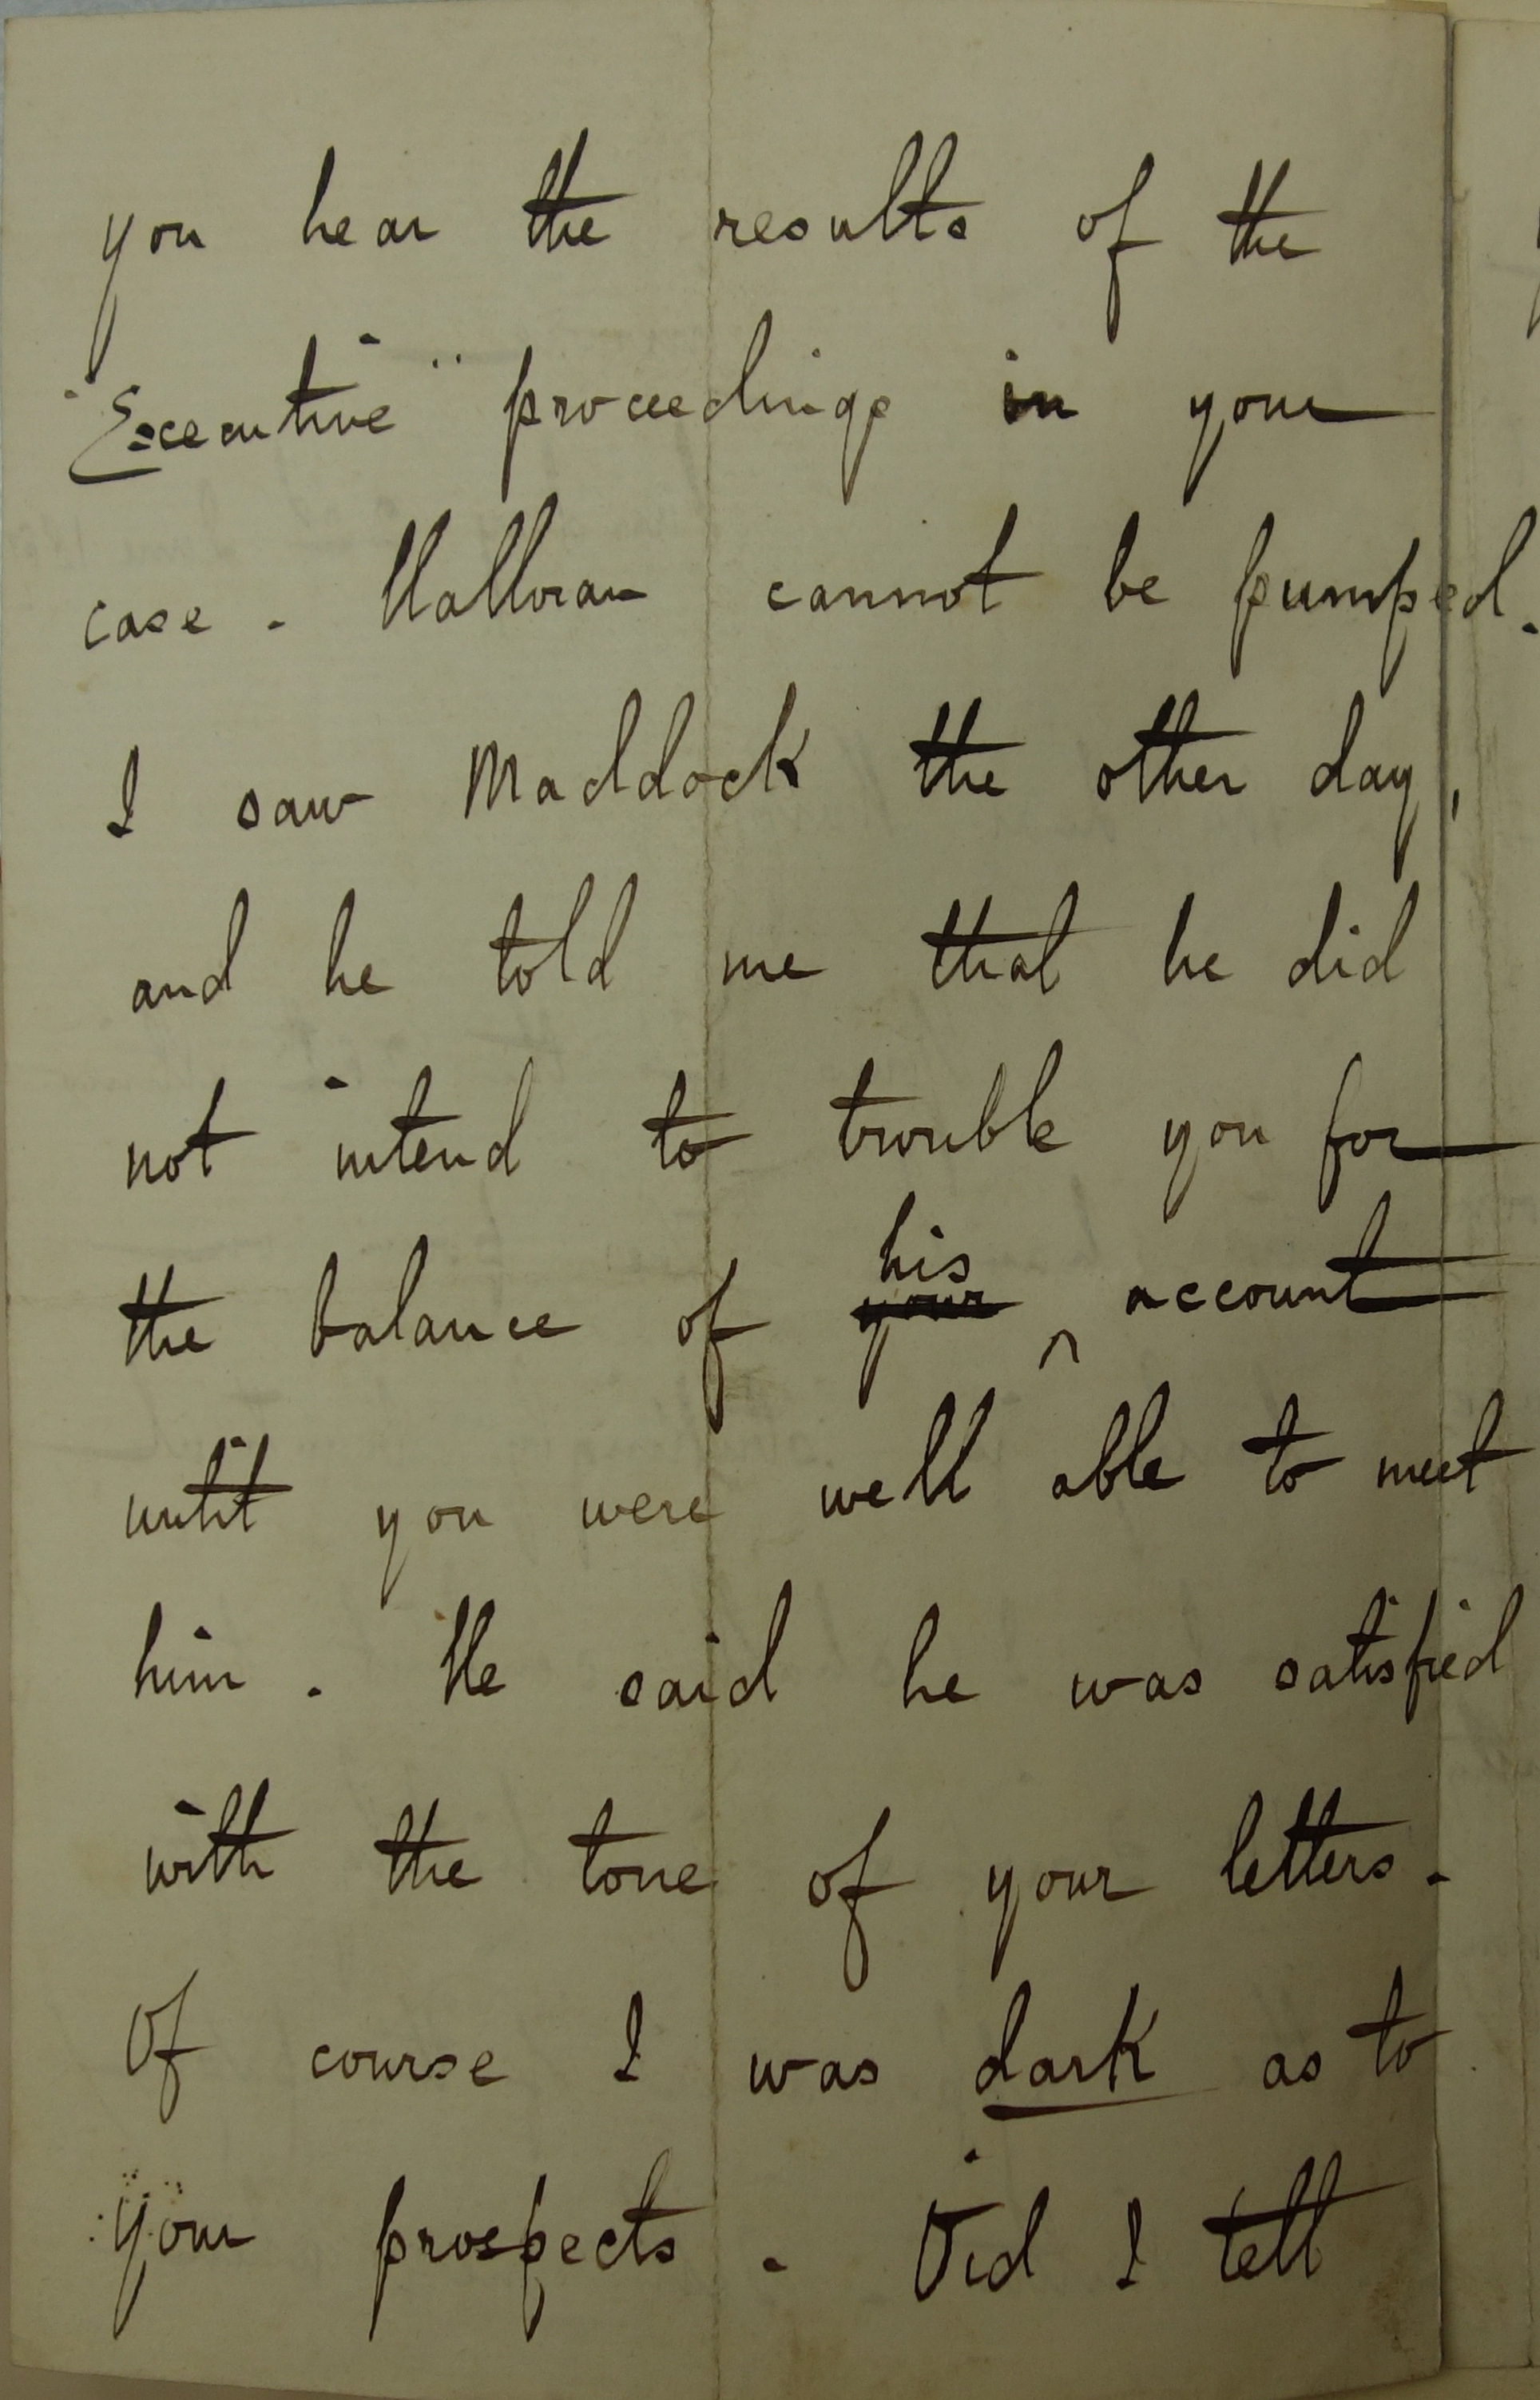 you hear the results of the
"Executive" proceedings in your
case. Halloran cannot be pumped.
I saw Maddock the other day,
and he told me that he did
not intend to trouble you for
the balance of your his account
until you were well able to meet
him. He said he was satisfied
with the tone of your letters.
Of course I was dark as to
your prospects. Did I tell